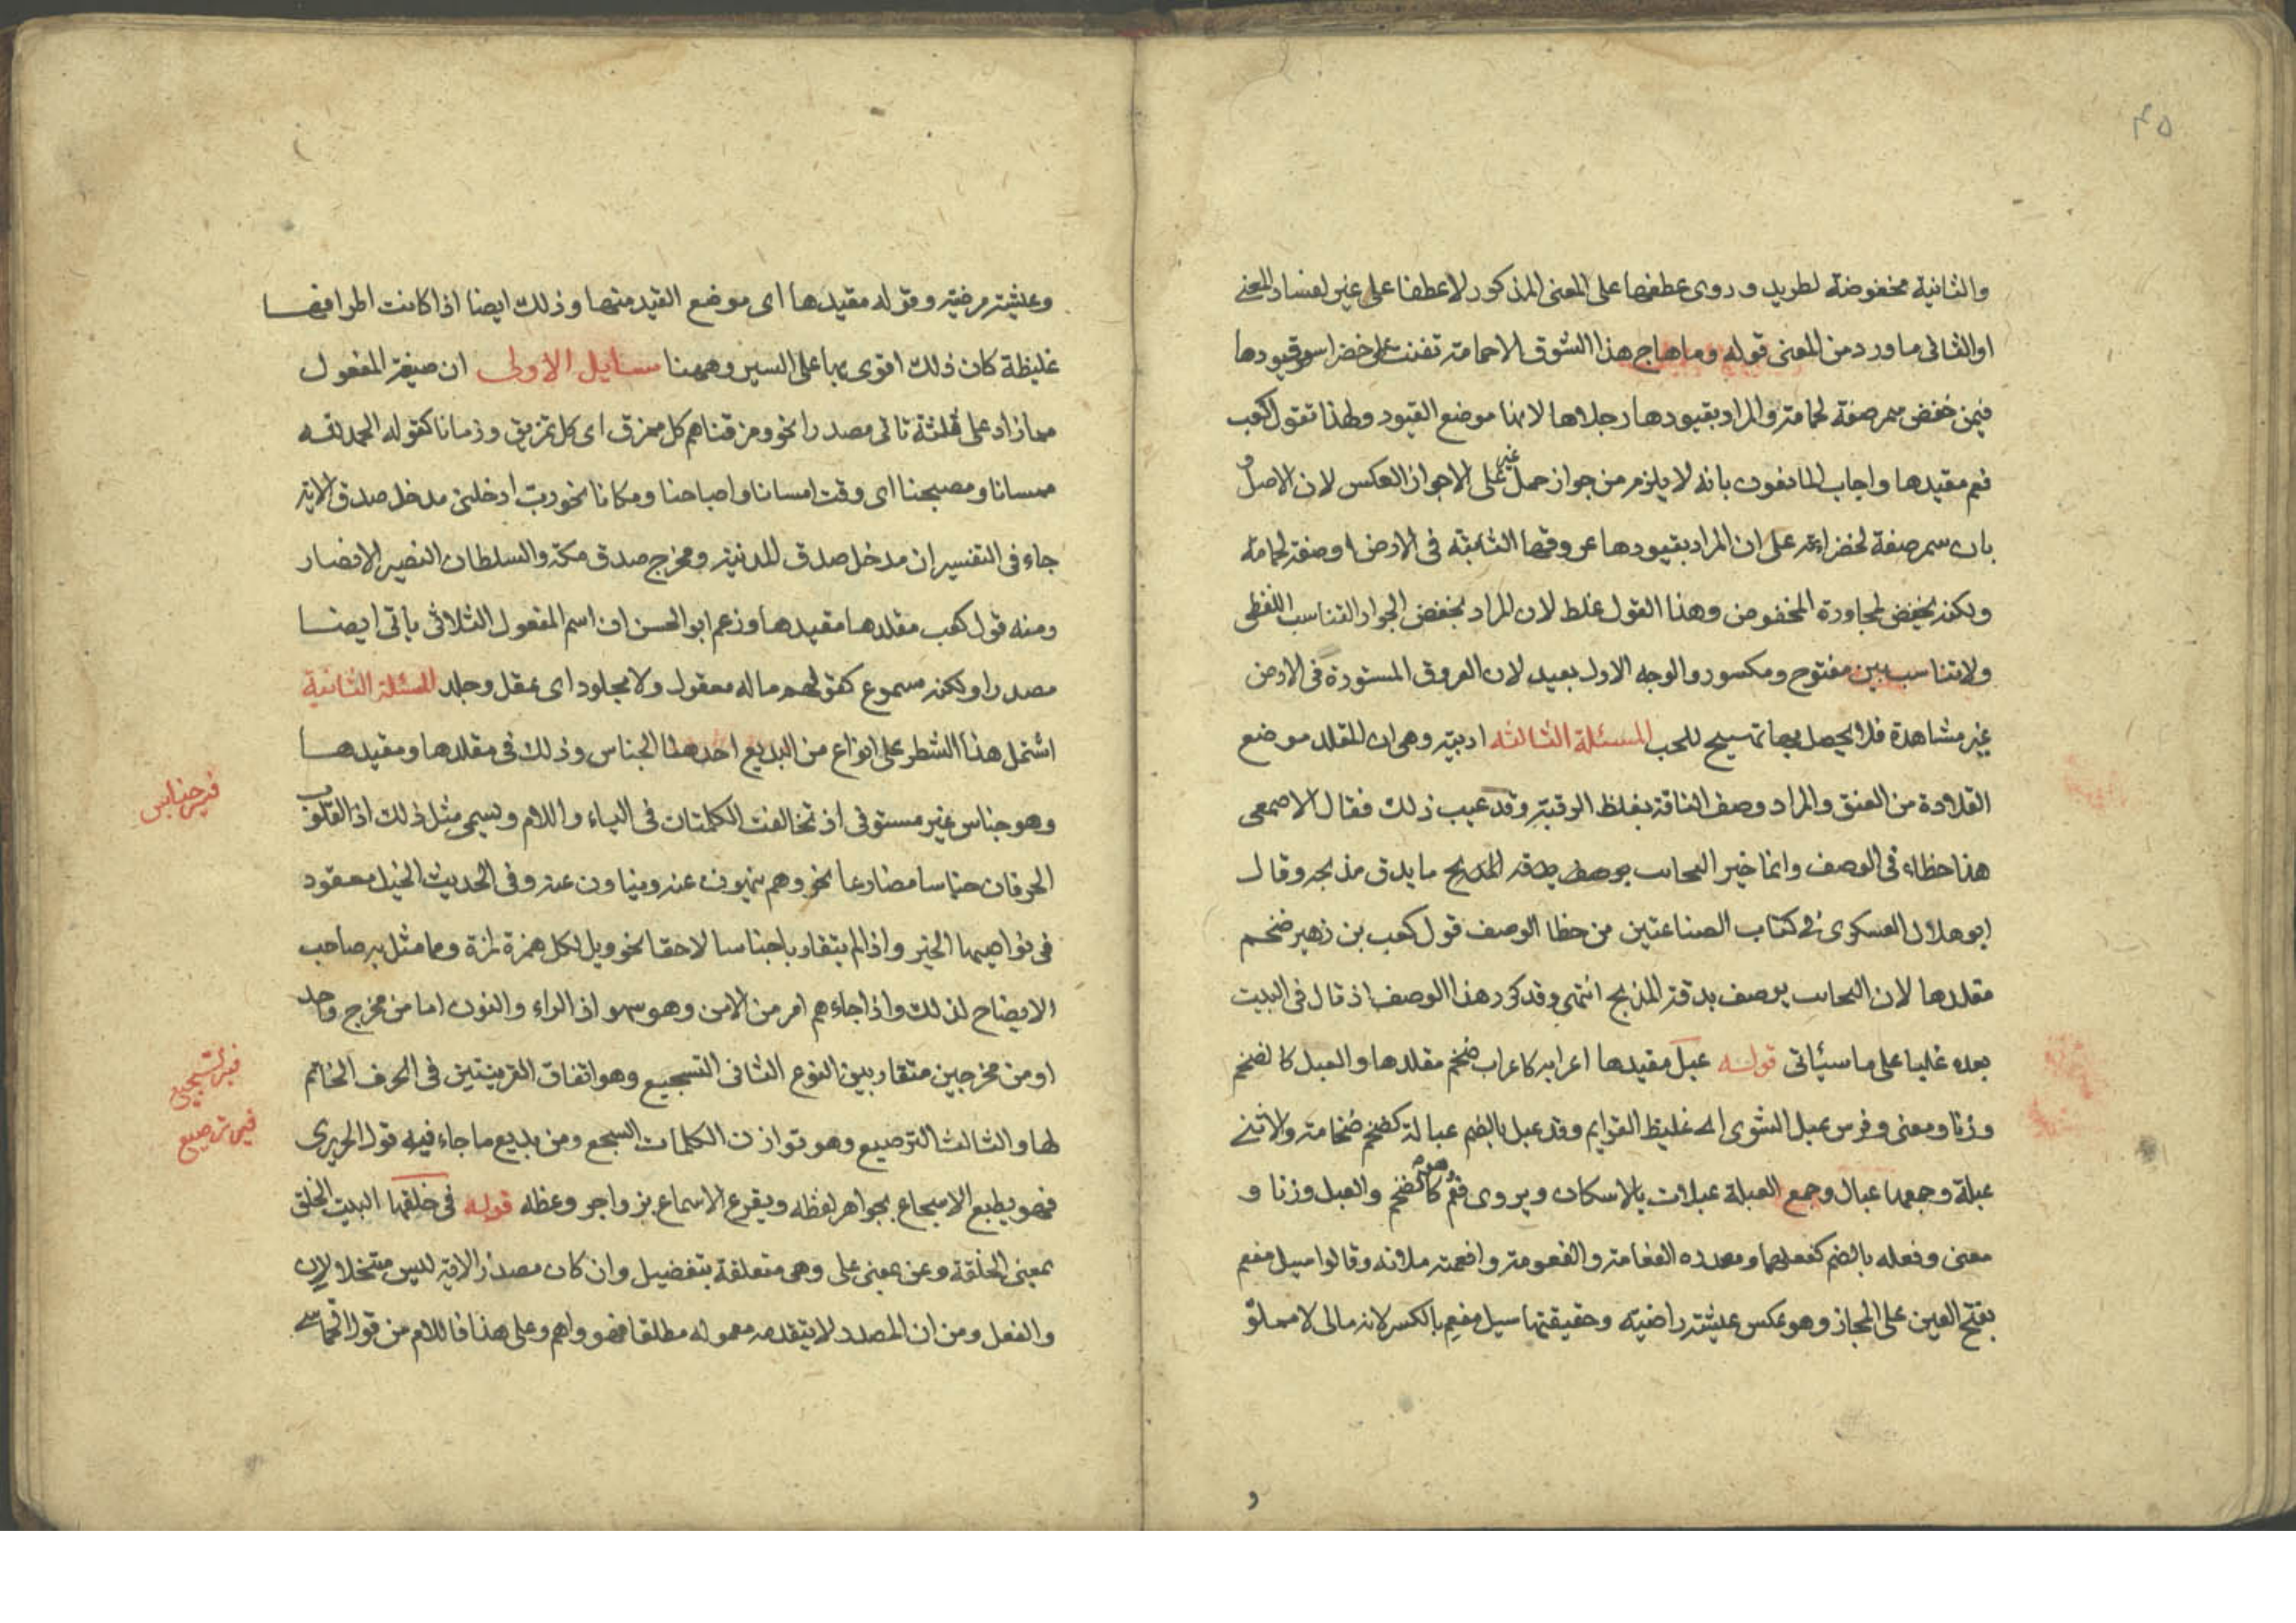 ٤٥
والثانية مخفوضة لطريد وروى عطفها على المعنى المذكور لا عطفا على غير لفساد المعنى
اوالثانى ما ورد من المعنى قوله وما هاج هذا الشوق الا حمامة تغنت على خضراسمر قيودها
فيمن خفض سمر صفة لحمامة والمراد بقيودها رجلاها لانها موضع القيود ولهذا تقول كعب
فعم مقيدها واجاب المانعون بانه لا يلزم من جواز حمل غير على الا جواز العكس لان الاصل و
بان سمر صفة لخضراء على ان المراد بقيودها عروقها الثابتة فى الارض اوصفة لحمامة
ولكنه بخفض لمجاورة المخفوض وهذا القول غلط لان المراد بخفض الجوار التناسب اللفظى
ولا تناسب بين مفتوح ومكسور والوجه الاول بعيد لان العروق المستورة فى الارض
غير مشاهدة فلا يحصل بها تهييج للحب المسئلة الثالثه ادبية وهى ان المقلد موضع
القلادة من العنق والمراد وصف الناقة بغلظ الرقبة وقد عيب ذلك فقال الاصمعى
هذا خطاء فى الوصف وانما خير النجائب ما يدق مذبحه وقال
ابو هلال العسكرى فى كتاب الصناعتين من خطا الوصف قول كعب بن زهير ضخم
مقلدها لان النجائب يوصف بدقة المذبح انتهى وقد كرر هذا الوصف اذ قال فى البيت
بعده غلبا على ما سيئاتى قولـه عبل مقيدها اعرابه كاعراب ضخم مقلدها والعبل كالضخم
وزنا ومعنى وفرس عبل الشوى اى غليظ القوايم وقد عبل بالضم عبالة كضخم ضخامة والانثى
عبلة وجمعها عبال وجمع العبلة عبلات بالاسكان ويروى فعم كالضخم والعبل وزنا و
معنى وفعله بالضم كفعلهما ومصدره الفعامة والفعومة وافعمته ملأته وقالوا سيل مفعم
بفتح العين على المجاز وهو عكس عيشة راضية وحقيقتها سيل مفعم بالكسر لانه مالئ لا مملوّ
و
وعيشة مرضية وقوله مقيدها اى موضع القيد منها وذلك ايضا اذا كانت اطرافها
غليظة كان ذلك اقوى بها على السير وههنا مسايل الاولى ان صيغة المفعول
مما زاد على ثلثة تاتى مصدرا نحو ومزقناهم كل ممزق اى كل تمزيق وزمانا كقوله الحمد لله
ممسانا ومصبحنا اى وقت امسانا واصباحنا ومكانا نحو رب ادخلنى مدخل صدق الاية
جاء فى التفسير ان مدخل صدق المدنية ومخرج صدق مكة والسلطان النصير الانصار
ومنه قول كعب مقلدها مقيدها وزعم ابو الحسن ان اسم المفعول الثلاثى ياتى ايضا
مصدرا ولكنه مسموع كقولهم ما له معقول ولا مجلود اى عقل وجلد المسئلة الثانية
اشتمل هذا الشطر على انواع من البديع احدها الجناس وذلك فى مقلدها ومقيدها
وهو جناس غير مستوفى اذ تخالفت الكلمتان فى الياء واللام ويسمى مثل ذلك اذا تقارب
الحرفان جناسا مضارعا نحو وهم ينهون عنه وينأون عنه وفى الحديث الخيل معقود
فى نواصيها الخير واذا لم يتقاربا جناسا لاحقا نحو ويل لكل همزة لمزة ومما مثل به صاحب
الايضاح لذلك واذا جاءهم امر من الامن وهو سهو اذ الراء والنون اما من مخرج واحد
او من مخرجين متقاربين النوع الثانى التسجيع وهو اتفاق القرينتين فى الحرف الخاتم
لها والثالث الترصيع وهو توازن الكلمات السجع ومن بديع ما جاء فيه قول الحريرى
فهو يطبع الاسجاع بجواهر لفظه ويقرع الاسماع بزواجر وعظه قوله فى خلقها البيت الخلق
بمعنى الخلقة وعن بمعنى على وهى متعلقة بتفضيل وان كان مصدرا لانه ليس منحلا لان
والفعل ومن ان المصدر لا يتقدمه معموله مطلقا فهو واهم وعلى هذا فاللام من قول الحماسى
فيه جناس
فيه تسجيع
فيه ترصيع